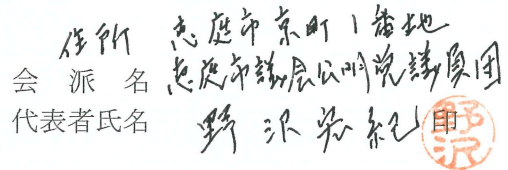 住所 恵庭市京町1番地
会派名 恵庭市議会公明党議員団
代表者氏名 野沢宏紀 印
野沢